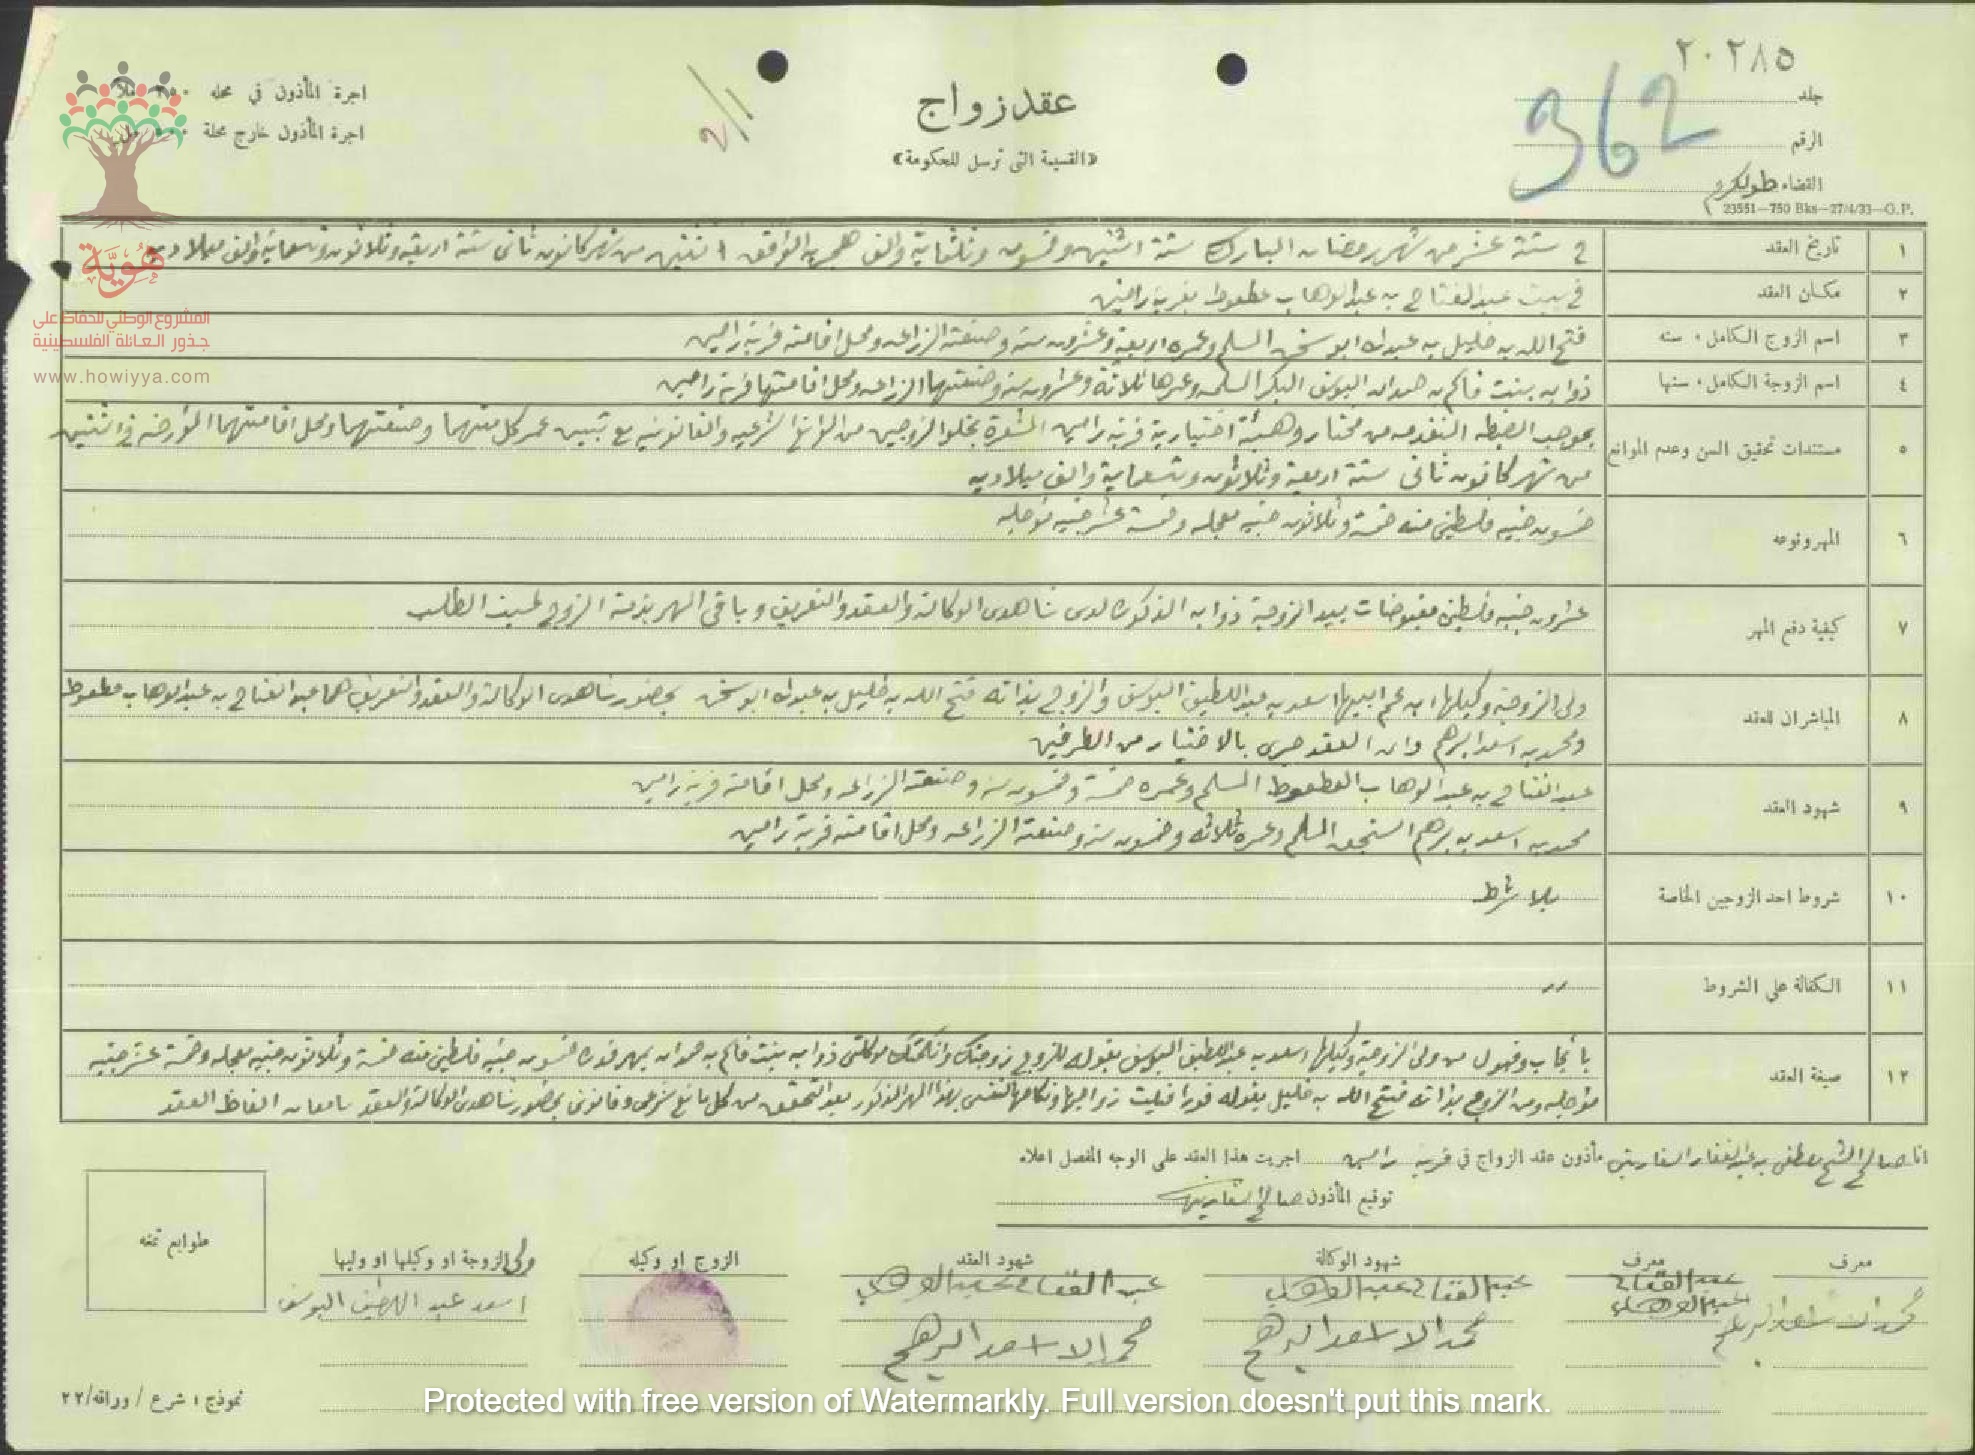 ٢٠٢٨٥
جلد
362
الرقم
القضاء طولكرم
23551—750 Bks—27/4/33—G.P.
عقد زواج
«القسيمة التي ترسل للحكومة»
٢/١
اجرة المأذون في محله ٢٥٠ ملا
اجرة المأذون خارج محلة ٥٠٠ مل
هوية
المشروع الوطني للحفاظ على
جذور العائلة الفلسطينية
www.howiyya.com
١ تاريخ العقد في ستة عشر من شهر رمضان المبارك سنة اثنين وخمسون وثلثماية والف هجريه الموافق اثنين من شهر كانون ثاني سنة اربعة وثلاثون وتسعماية والف ميلاديه
٢ مكان العقد في بيت عبد الفتاح بن عبد الوهاب عطعوط بقرية رامين
٣ اسم الزوج الكامل، سنه فتح الله بن خليل بن عبدالله ابو المسلم وعمره اربعة وعشرون سنة وصنعته الزراعه ومحل اقامته قرية رامين
٤ اسم الزوجة الكامل، سنها بنت قاسم بن حمدان اليوسف البكر المسلمه وعمرها ثلاثة وعشرون سنة وصنعتها الزراعه ومحل اقامتها قرية رامين
٥ مستندات تحقيق السن وعدم الموانع بموجب المضبطه المتقدمه من مختار وهيئة اختيارية قرية رامين المشعرة بخلو الزوجين من الموانع الشرعيه والقانونيه مع تبيين عمر كل منهما وصنعتهما ومحل اقامتهما المؤرخه في اثنين
من شهر كانون ثاني سنة اربعة وثلاثون وتسعماية والف ميلاديه
٦ المهر ونوعه خمسون جنيه فلسطيني منه خمسة وثلاثون جنيه معجله وخمسة عشر جنيه مؤجله
٧ كيفية دفع المهر عشرون جنيه فلسطيني مقبوضات بيد الزوجة المذكوره لدى شاهدي الوكالة والعقد والتعريف وباقي المهر بذمة الزوج لحين الطلب
٨ المباشران للعقد ولي الزوجة وكيلها ابن عم ابيها اسعد بن عبد اللطيف اليوسف والزوج بذاته فتح الله بن خليل بن عبدالله ابو بحضور شاهدي الوكالة والعقد والتعريف هما عبد الفتاح بن عبد الوهاب عطعوط
ومحمد بن اسعد ابرهيم وان العقد جرى بالاختيار من الطرفين
٩ شهود العقد عبد الفتاح بن عبد الوهاب العطعوط المسلم وعمره خمسة وخمسون سنه وصنعته الزراعه ومحل اقامته قرية رامين
محمد بن اسعد بن برهم المسلم وعمره ثلاثه وخمسون سنه وصنعته الزراعه ومحل اقامته قرية رامين
١٠ شروط احد الزوجين الخاصة بلا شرط
١١ الكفالة على الشروط
١٢ صيغة العقد بايجاب وقبول من ولي الزوجة وكيلها اسعد بن عبد اللطيف اليوسف بقوله للزوج زوجتك وانكحتك موكلتي بنت قاسم بن حمدان بمهر قدره خمسون جنيه فلسطيني منه خمسة وثلاثون جنيه معجله وخمسة عشر جنيه
مؤجله ومن الزوج بذاته فتح الله بن خليل بقوله فورا قبلت زواجها ونكاحها لنفسي بهذا المهر المذكور بعد التحقق من كل مانع شرعي وقانوني بحضور شاهدي الوكالة والعقد سامعان الفاظ العقد
انا صالح الشيخ مصطفى بن عبد الغفار السفاريني مأذون عقد الزواج في قرية رامين اجريت هذا العقد على الوجه المفصل اعلاه
توقيع المأذون صالح السفاريني
معرف
محمد الاسعد البرهم
معرف
عبد الفتاح
عبد الوهاب
شهود الوكالة
عبد الفتاح عبد الوهاب
محمد الاسعد البرهم
شهود العقد
عبد الفتاح عبد الوهاب
محمد الاسعد البرهم
الزوج او وكيله
ولي الزوجة او وكيلها او وليها
اسعد عبد اللطيف اليوسف
طوابع تمغه
نموذج ١ شرع / وراقه/٢٢
Protected with free version of Watermarkly. Full version doesn't put this mark.